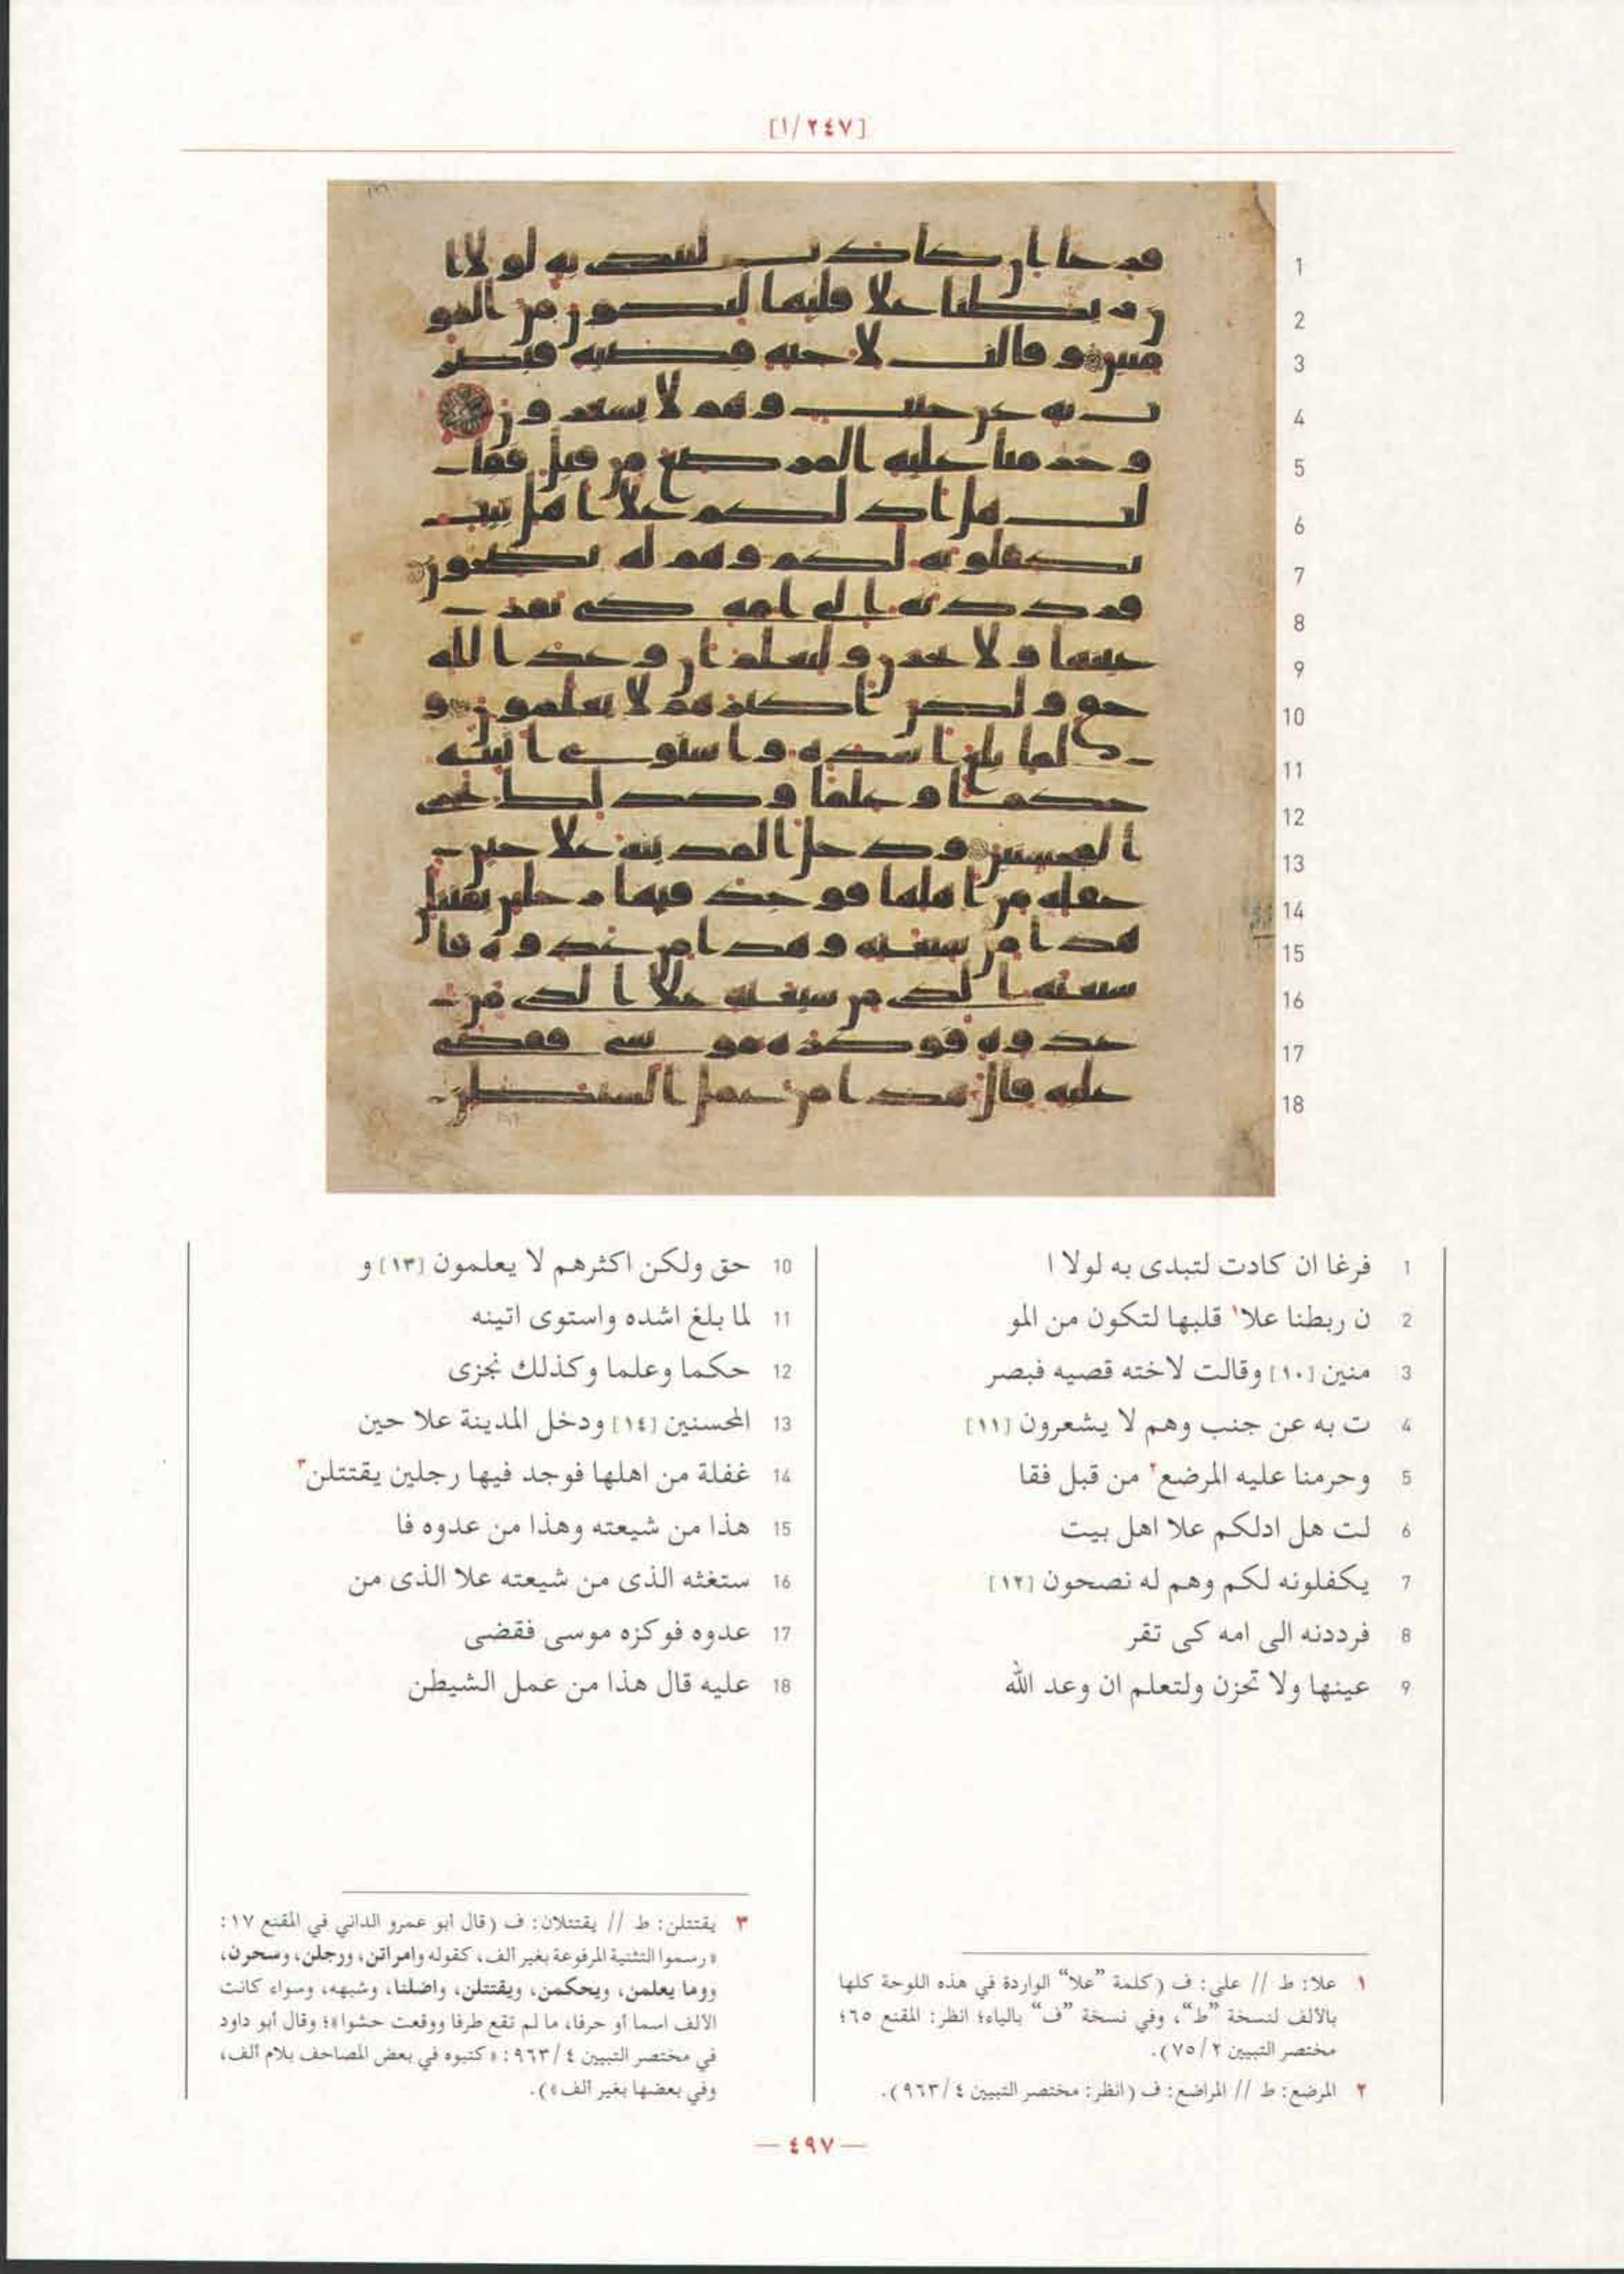 [١/٢٤٧]
1 فرغا ان كادت لتبدى به لولا ا
2 ن ربطنا علا١ قلبها لتكون من المو
3 منين [١٠] وقالت لاخته قصيه فبصر
4 ت به عن جنب وهم لا يشعرون [١١]
5 وحرمنا عليه المرضع٢ من قبل فقا
6 لت هل ادلكم علا اهل بيت
7 يكفلونه لكم وهم له نصحون [١٢]
8 فرددنه الى امه كى تقر
9 عينها ولا تحزن ولتعلم ان وعد الله
10 حق ولكن اكثرهم لا يعلمون [١٣] و
11 لما بلغ اشده واستوى اتينه
12 حكما وعلما وكذلك نجزى
13 المحسنين [١٤] ودخل المدينة علا حين
14 غفلة من اهلها فوجد فيها رجلين يقتتلن٣
15 هذا من شيعته وهذا من عدوه فا
16 ستغثه الذى من شيعته علا الذى من
17 عدوه فوكزه موسى فقضى
18 عليه قال هذا من عمل الشيطن
١ علا: ط // على: ف (كلمة ”علا“ الواردة في هذه اللوحة كلها
بالألف لنسخة ”ط“، وفي نسخة ”ف“ بالياء؛ انظر: المقنع ٦٥؛
مختصر التبيين ٢/ ٧٥).
٢ المرضع: ط // المراضع: ف (انظر: مختصر التبيين ٤/ ٩٦٣).
٣ يقتتلن: ط // يقتتلان: ف (قال أبو عمرو الداني في المقنع ١٧:
«رسموا التثنية المرفوعة بغير ألف، كقوله وامراتن، ورجلن، وسحرن،
وما يعلمن، ويحكمن، ويقتتلن، واضلنا، وشبهه، وسواء كانت
الألف اسما أو حرفا، ما لم تقع طرفا ووقعت حشوا»؛ وقال أبو داود
في مختصر التبيين ٤/ ٩٦٣: «كتبوه في بعض المصاحف بلام ألف،
وفي بعضها بغير ألف»).
— ٤٩٧ —